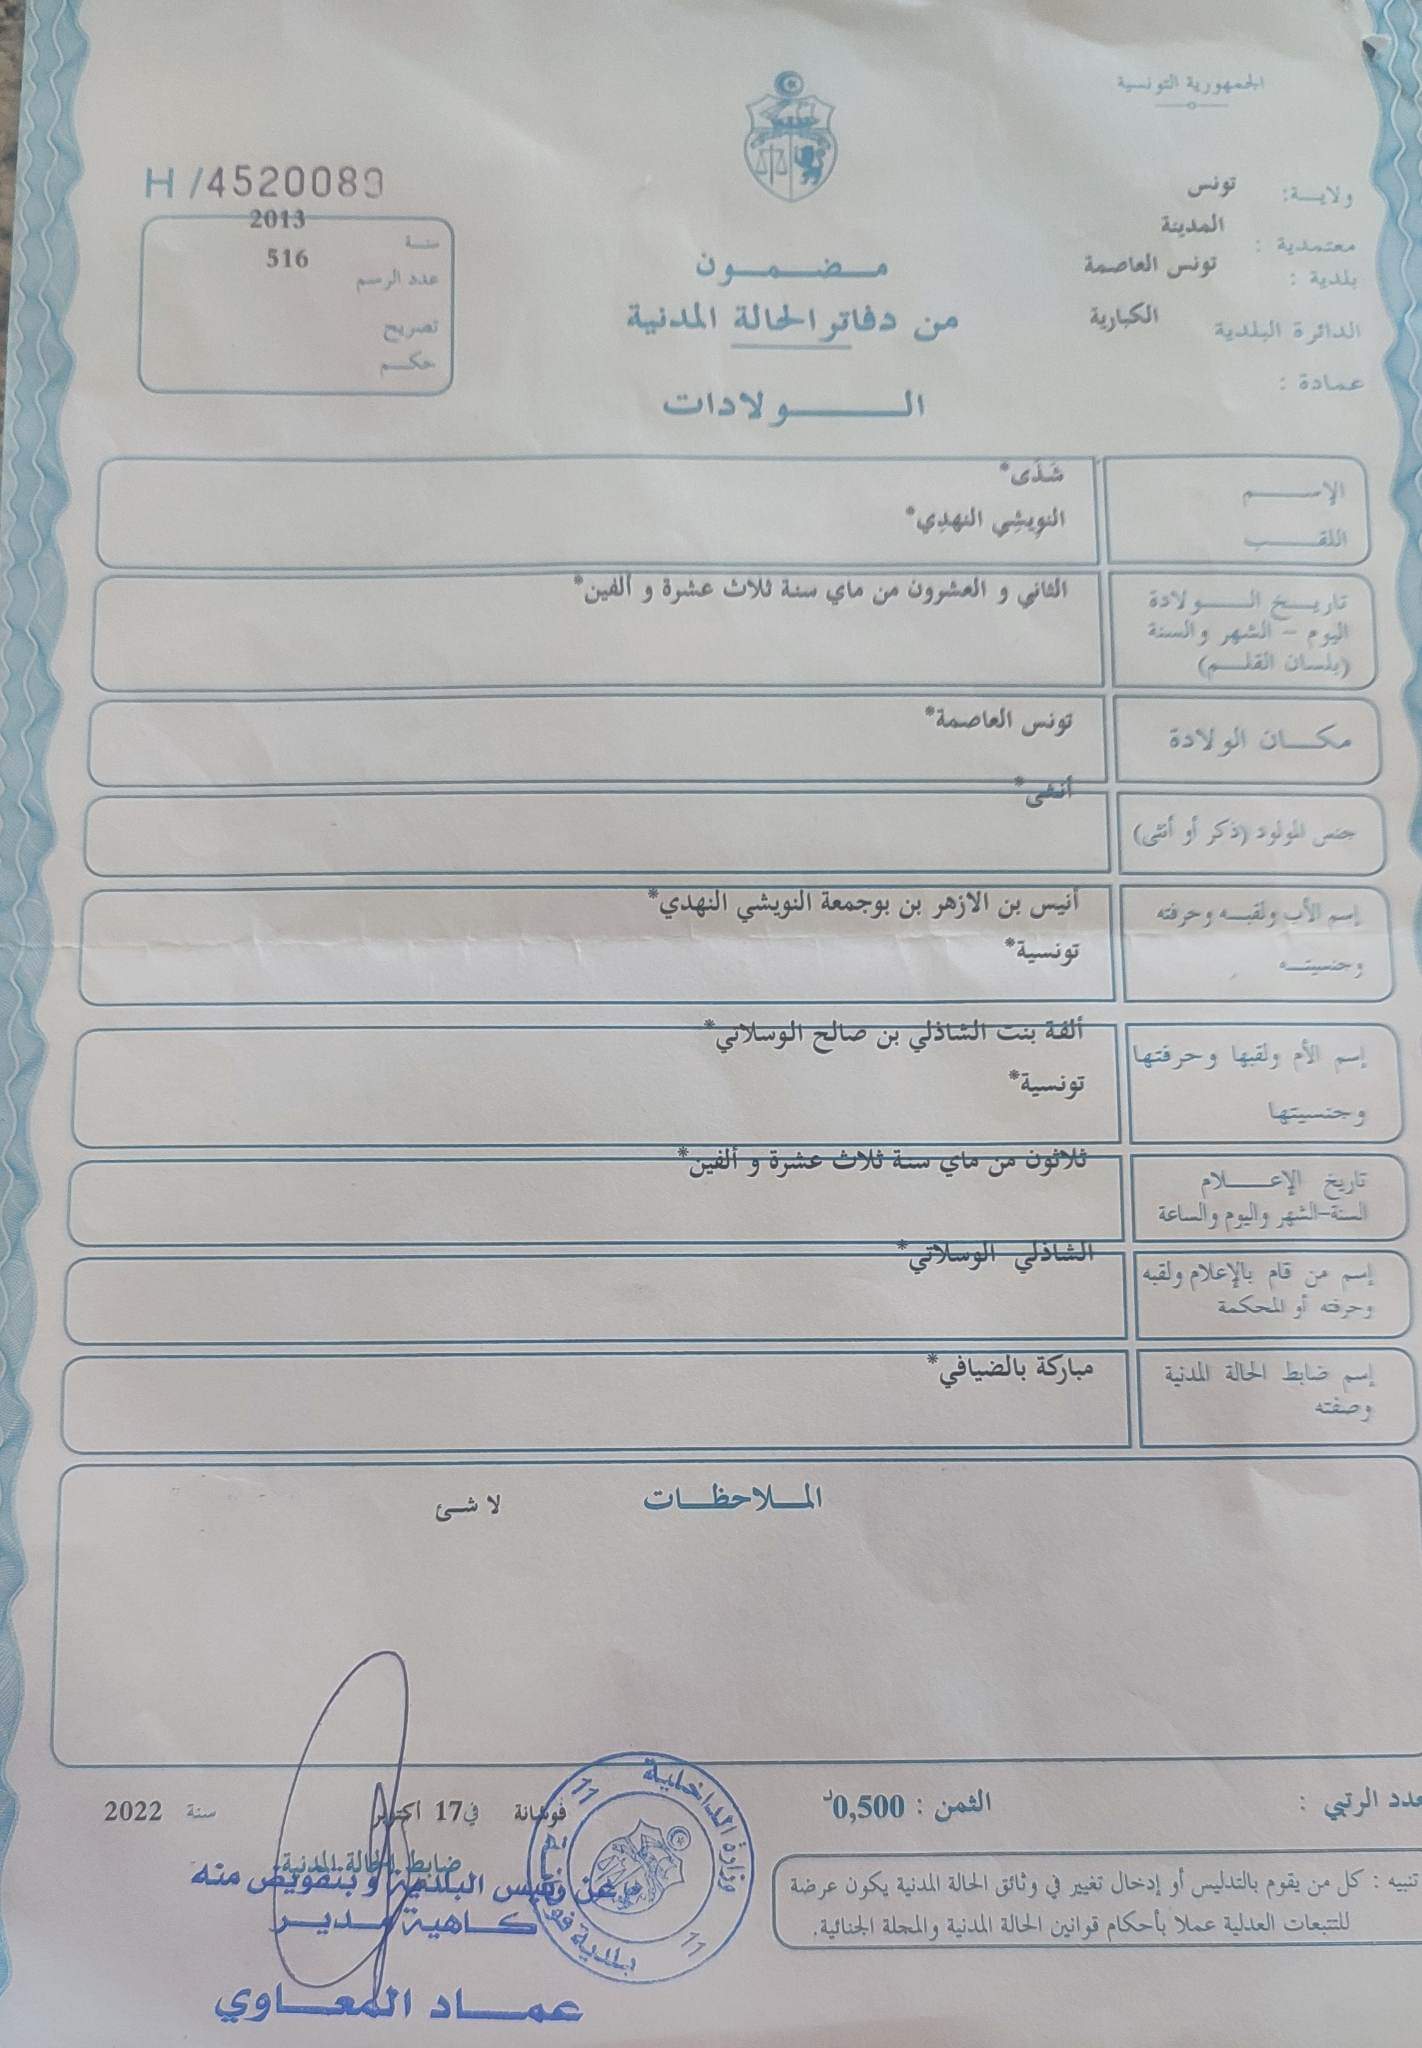 الجمهورية التونسية
ولايـة: تونس
معتمدية : المدينة
بلدية : تونس العاصمة
الدائرة البلدية الكبارية
عمادة :
H /4520089
سنـة 2013
عدد الرسم 516
تصريح
حكـم
مـضـمـون
من دفاتر الحالة المدنية
الـولادات
الإسـم شَذَى*
اللقـب النوِيشِي النهدِي*
تاريـخ الـولادة
اليوم - الشهر والسنة
(بلسان القلـم)
الثاني و العشرون من ماي سنة ثلاث عشرة و ألفين*
مكـان الولادة تونس العاصمة*
جنس المولود (ذكر أو أنثى) أنثى*
إسم الأب ولقبـه وحرفته
وجنسيتـه
أنيس بن الازهر بن بوجمعة النويشي النهدي*
تونسية*
إسم الأم ولقبها وحرفتها
وجنسيتها
ألفة بنت الشاذلي بن صالح الوسلاتي*
تونسية*
تاريخ الإعـلام
السنة-الشهر واليوم والساعة
ثلاثون من ماي سنة ثلاث عشرة و ألفين*
إسم من قام بالإعلام ولقبه
وحرفته أو المحكمة
الشاذلي الوسلاتي*
إسم ضابط الحالة المدنية
وصفته
مباركة بالضيافي*
المـلاحظـات
لا شئ
عدد الرتبي :
الثمن : 0,500د
فوشانة في 17 اكتوبر سنة 2022
ضابط الحالة المدنية
عن رئيس البلدية و بتفويض منه
كـاهية مديـر
عمـاد المعـاوي
وزارة الداخلية
بلدية فوشانة
11
11
تنبيه : كل من يقوم بالتدليس أو إدخال تغيير في وثائق الحالة المدنية يكون عرضة
للتتبعات العدلية عملا بأحكام قوانين الحالة المدنية والمجلة الجنائية.